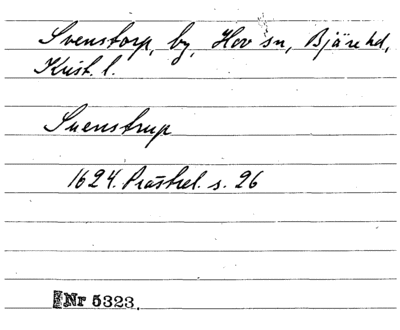 Svenstorp, by, Hov sn, Bjäre hd,
Krist. l.
Suenstrup
1624. Prästrel. s. 26
Nr 5323.